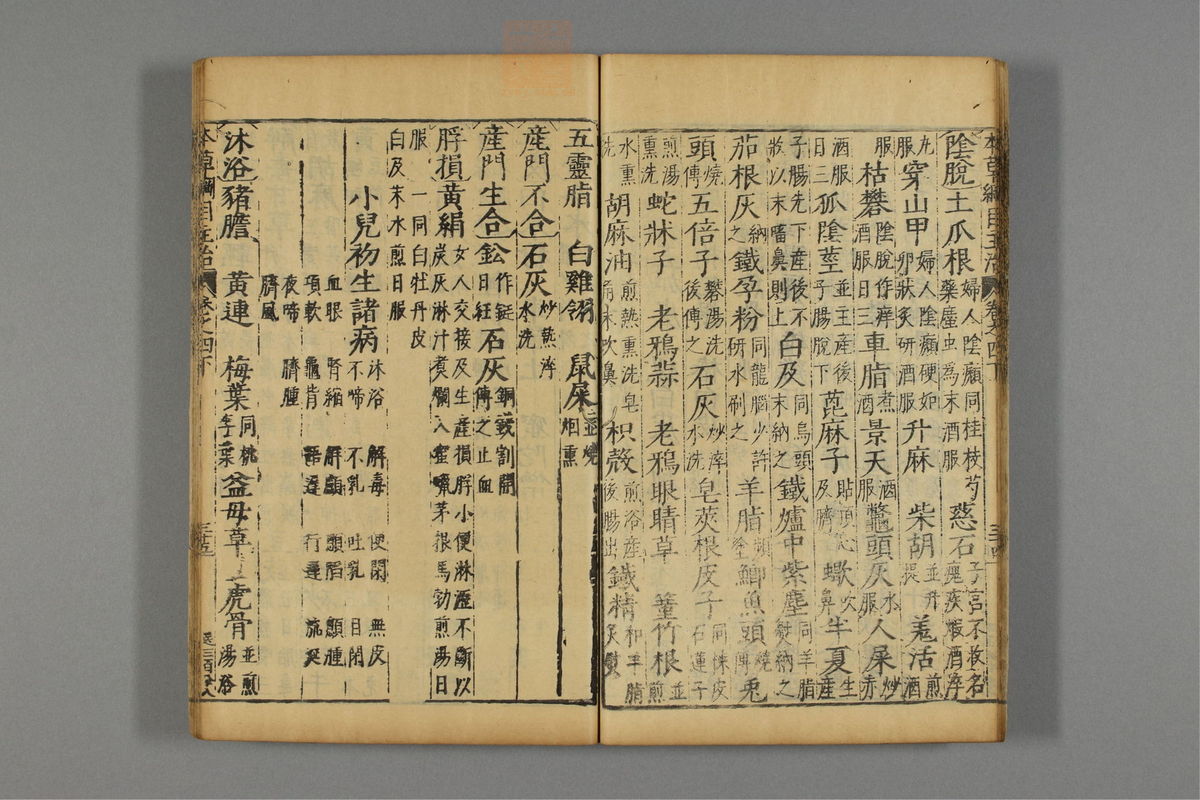 本草綱目主治 卷之四下 三十四
陰脫 土爪根 婦人陰㿗同桂枝芍藥䗪虫為末酒服 慈石 子宮不收名瘣疾煅酒淬
丸服 穿山甲 婦人陰㿗硬如卵狀炙研酒服 升麻 柴胡 並升提 羗活 煎酒
服 枯礬 陰脫作痒酒服日三 車脂 煮酒 景天 酒服 鼈頭灰 水服 人屎 炒赤
酒服日三 狐陰莖 並主產後子腸脫下 蓖麻子 貼頂心及臍 蠍 吹鼻 半夏 生產
子腸先下產後不收以末㗜鼻則上 白及 同烏頭末納之 鐵爐中紫塵 同羊脂熨納之
茄根灰 納之 鐵孕粉 同龍腦少許研水刷之 羊脂 頻塗 鯽魚頭 燒傅 兎
頭 燒傅 五倍子 礬湯洗後傅之 石灰 炒淬水洗 皂莢根皮子 同楝皮石蓮子
煎湯熏洗 蛇牀子 老鴉蒜 老鴉眼睛草 箽竹根 並煎
水熏洗 胡麻油 煎熱熏洗皂角末吹鼻 枳殼 煎浴產後腸出 鐵精 和羊脂炙熨
五靈脂 白雞翎 鼠屎 並燒烟熏
產門不合 石灰 炒熱淬水洗
產門生合 鉛 作鋌日紝 石灰 銅錢割開傅之止血
脬損 黃絹 女人交接及生產損脬小便淋瀝不斷以炭灰淋汁煮爛入蜜蠟茅根馬勃煎湯日
服 一同白牡丹皮白及末水煎日服
小兒初生諸病 沐浴 解毒 便閉 無皮
不啼 不乳 吐乳 目閉
血眼 腎縮 解顱 顖陷 顖腫
項軟 龜背 語遲 行遲 流涎
夜啼 臍腫
臍風
沐浴 豬膽 黃連 梅葉 同桃李葉 益母草 虎骨 並煎湯浴
本草綱目主治 卷之四下 三十五